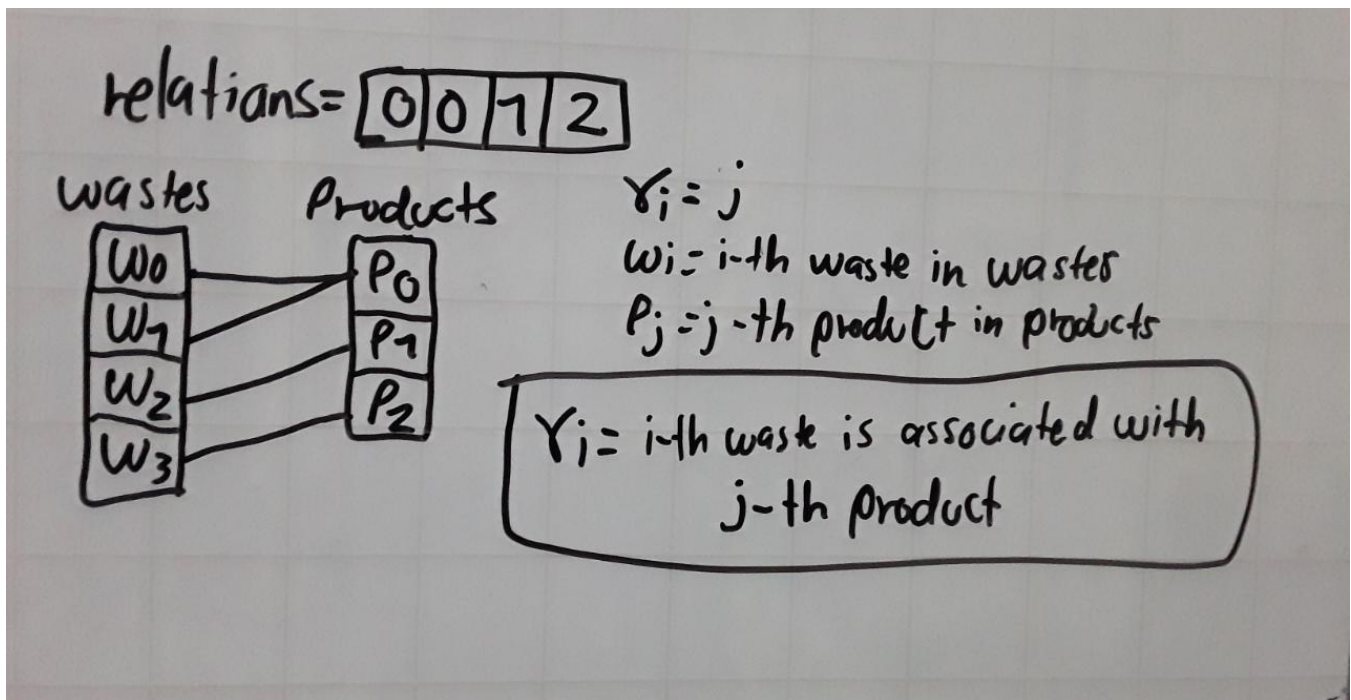 relations= 0 0 1 2
wastes
W0
W1
W2
W3
Products
P0
P1
P2
ri = j
wi = i-th waste in wastes
Pj = j-th product in products
ri = i-th waste is associated with
j-th product